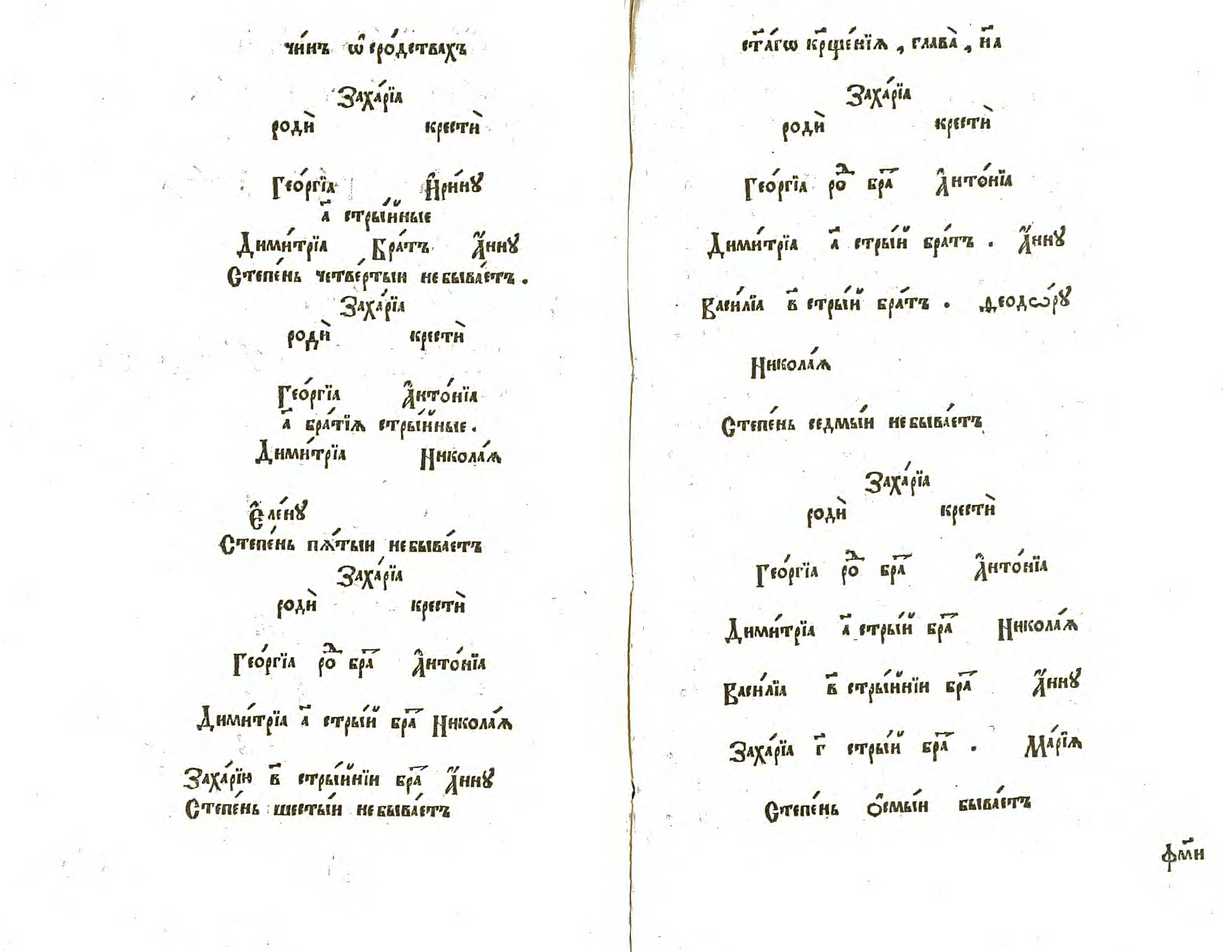 чи́нъ ѡ҆ сро́дствахъ
Заха́рїа
родѝ крестѝ
Гео́ргїа И҆ри́нꙋ
а҃ стрыи́ные
Дими́трїа Бра́тъ А҆́ннꙋ
Степе́нь четве́ртыи небыва́етъ .
Заха́рїа
родѝ крестѝ
Гео́ргїа А҆нто́нїа
а҃ бра́тїѧ стры́йные .
Дими́трїа Никола́ѧ
Е҆ле́нꙋ
Степе́нь пѧ́тыи небыва́етъ
Заха́рїа
родѝ крестѝ
Гео́ргїа роⷣ бра҃ А҆нто́нїа
Дими́трїа а҃ стры́й бра҃ Никола́ѧ
Заха́рїю в҃ стры́йнїи бра҃ А҆́ннꙋ
Степе́нь шесты́и небыва́етъ
ст҃а́гѡ кр҃ще́нїѧ , глава̀ , н҃а
Заха́рїа
родѝ крестѝ
Гео́ргїа роⷣ бра҃ А҆нто́нїа
Дими́трїа а҃ стры́й бра́тъ . А҆́ннꙋ
Васи́лїа в҃ стры́й бра́тъ . Ѳеодѡ́рꙋ
Никола́ѧ
Степе́нь седмы́и небыва́етъ
Заха́рїа
родѝ крестѝ
Гео́ргїа роⷣ бра҃ А҆нто́нїа
Дими́трїа а҃ стры́й бра҃ Никола́ѧ
Васи́лїа в҃ стры́йнїи бра҃ А҆́ннꙋ
Заха́рїа г҃ стры́й бра҃ . Марі́ѧ
Степе́нь ѻ҆смы́и быва́етъ
фм҃и